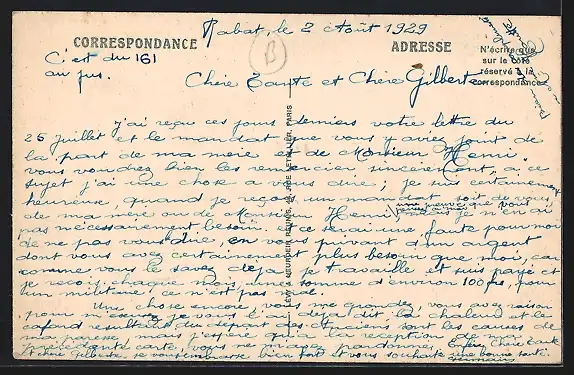 Rabat, le 2 Août 1929
CORRESPONDANCE
ADRESSE
N'écrire que
sur le côté
réservé à la
correspondance
C'est du 161
au jus.
B
Chère Tante et Chère Gilberte
J'ai reçu ces jours derniers votre lettre du
26 Juillet et le mandat que vous y avez joint de
la part de ma mère et de Monsieur Henri.
vous voudrez bien les remercier sincèrement, à ce
sujet j'ai une chose à vous dire ; je suis certainement
heureuse, quand je reçois un mandat soit de vous,
de ma mère ou de Monsieur Henri, mais je n'en ai
une preuve que vous
pensez à moi
pas nécessairement besoin et ce serait une faute pour moi
de ne pas vous dire, en vous privant d'un argent
dont vous avez certainement plus besoin que moi, car
comme vous le savez déjà je travaille et suis payé et
je reçois chaque mois une somme d'environ 100 frs, pour
un militaire, ce n'est pas mal.
Une chose encore, vous me grondez, vous avez raison
pour m'excuser je vous l'ai déjà dit, la chaleur et le
cafard résultant du départ des Anciens sont les causes de
ma paresse mais j'espère qu'à la réception de ma
précédente carte, vous me m'avez pardonné. Enfin Chère Tante
et chère Gilberte je vous embrasse bien fort et vous souhaite une bonne santé.
LEVY & NEURDEIN RÉUNIS, 44, RUE LETELLIER, PARIS